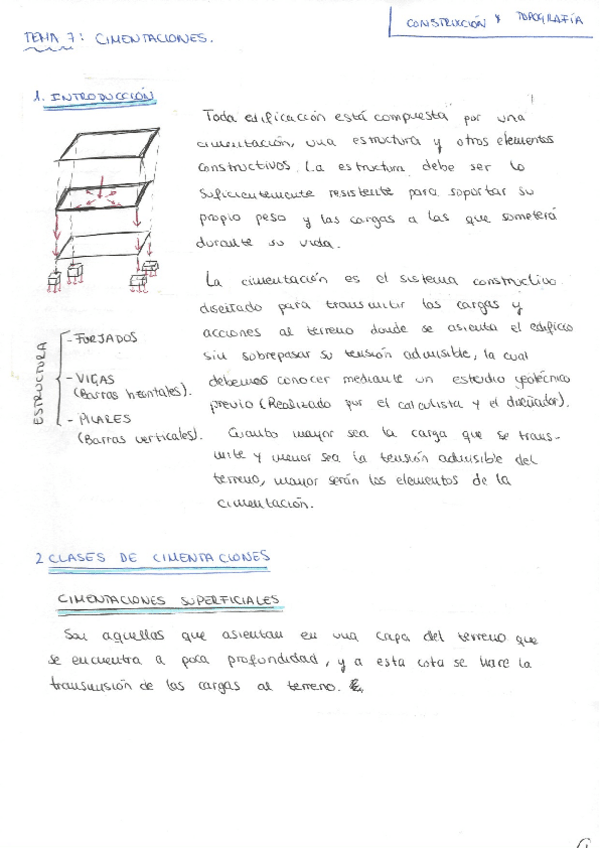 CONSTRUCCIÓN Y TOPOGRAFÍA
TEMA 7: CIMENTACIONES.
1. INTRODUCCIÓN
Toda edificación está compuesta por una
cimentación, una estructura y otros elementos
constructivos. La estructura debe ser lo
suficientemente resistente para soportar su
propio peso y las cargas a las que someterá
durante su vida.
La cimentación es el sistema constructivo
diseñado para transmitir las cargas y
acciones al terreno donde se asienta el edificio
sin sobrepasar su tensión admisible, la cual
debemos conocer mediante un estudio geotécnico
previo (Realizado por el calculista y el diseñador).
Cuanto mayor sea la carga que se trans-
mite y menor sea la tensión admisible del
terreno, mayor serán los elementos de la
cimentación.
ESTRUCTURA
- FORJADOS
- VIGAS
(Barras horizontales).
- PILARES
(Barras verticales).
2 CLASES DE CIMENTACIONES
CIMENTACIONES SUPERFICIALES
Son aquellas que asientan en una capa del terreno que
se encuentra a poca profundidad, y a esta cota se hace la
transmisión de las cargas al terreno.